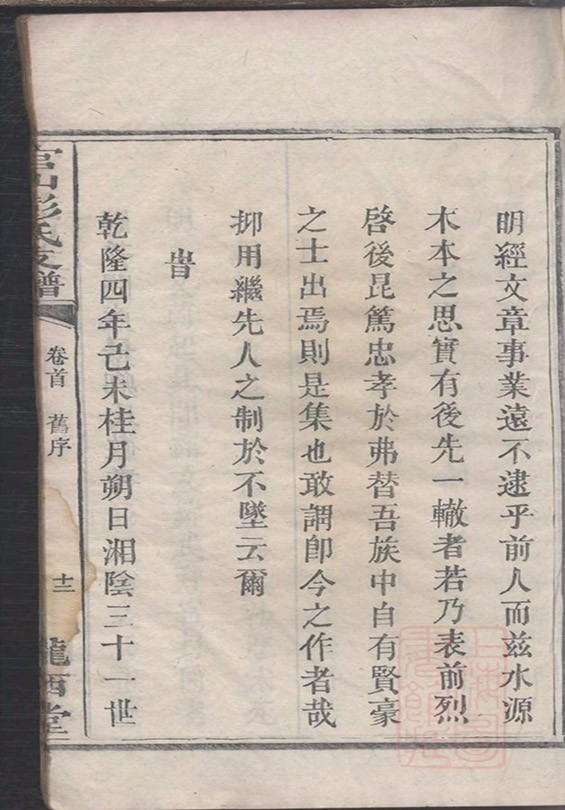 明經文章事業遠不逮乎前人而兹水源
木本之思實有後先一轍者若乃表前烈
啓後昆篤忠孝於弗替吾族中自有賢豪
之士出焉則是集也敢謂卽今之作者哉
抑用繼先人之制於不墜云爾
旹
乾隆四年己未桂月朔日湘陰三十一世
彭氏支譜
卷首 舊序
十二